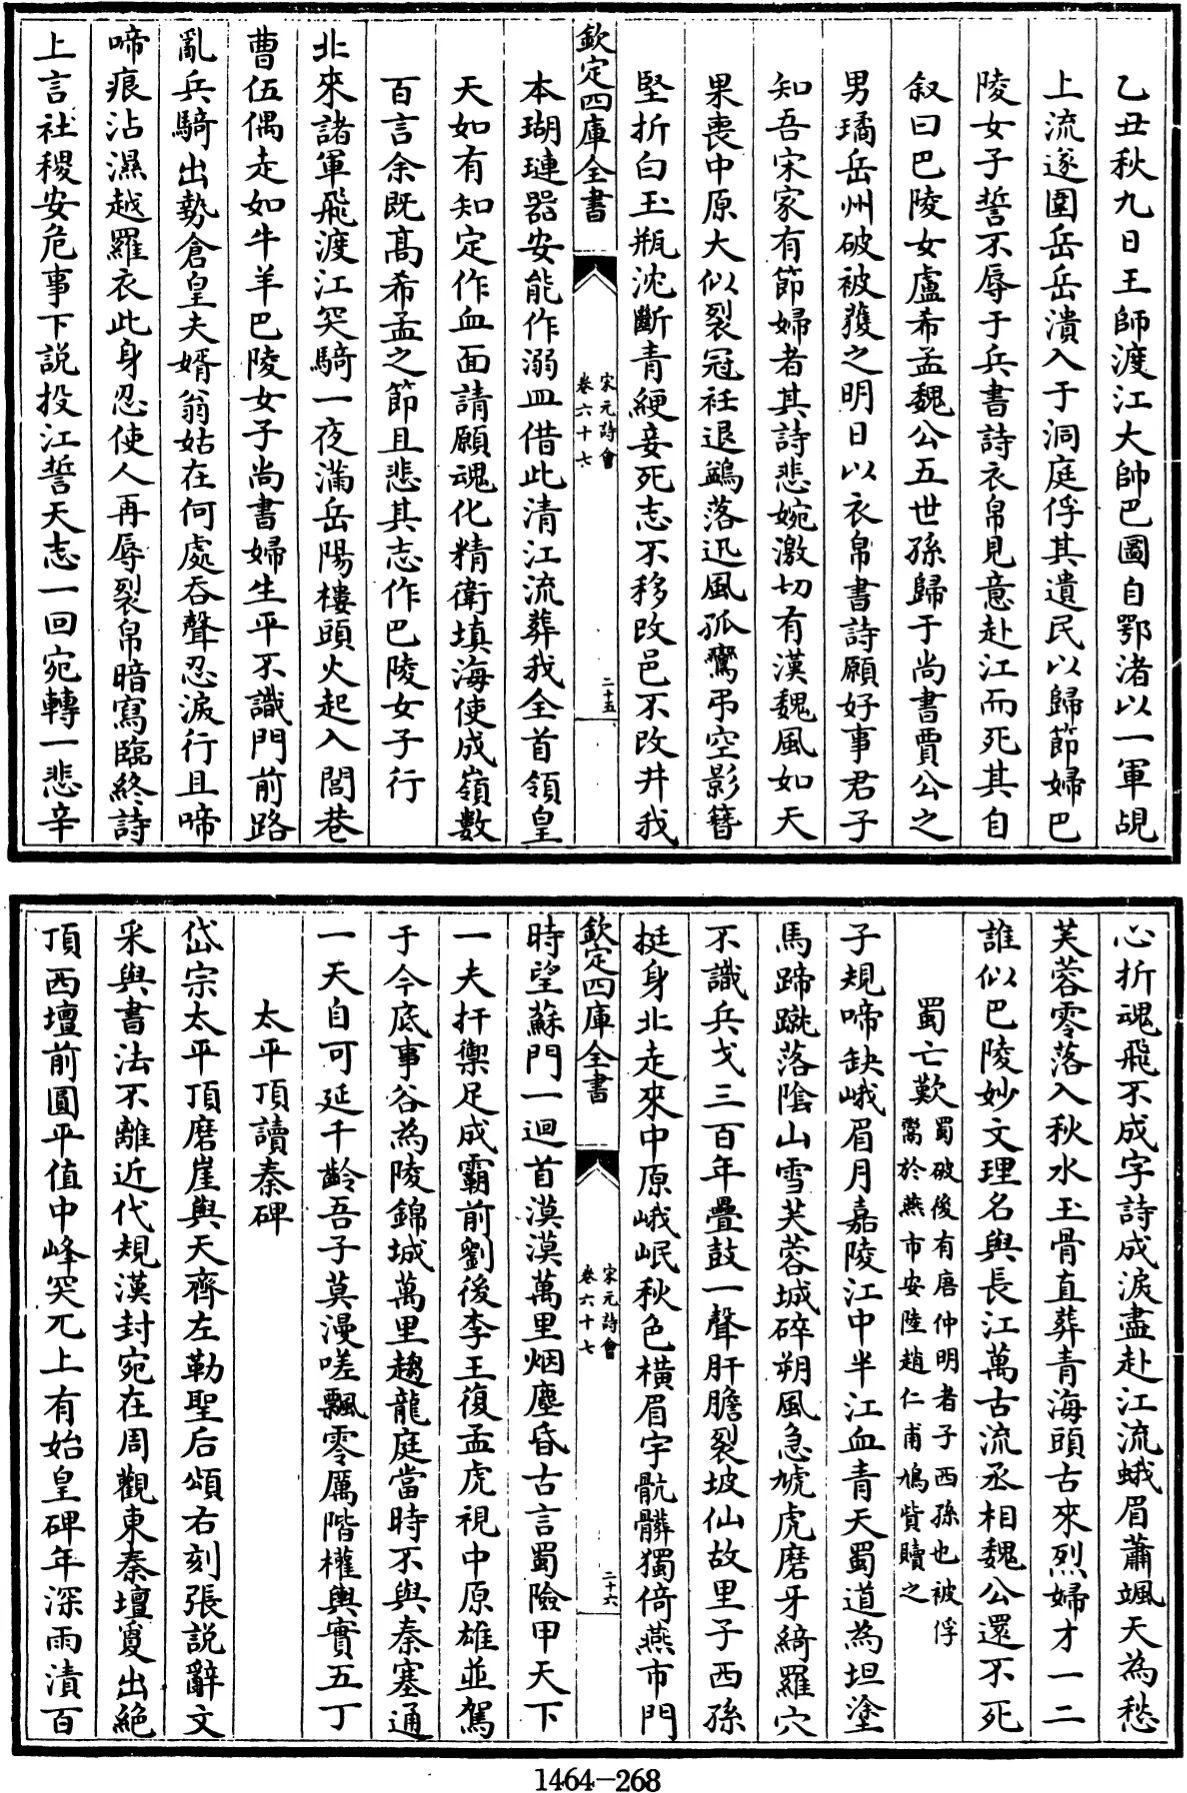 乙丑秋九日王師渡江大帥巴圖自鄂渚以一軍覘
上流遂圍岳岳潰入于洞庭俘其遺民以歸節婦巴
陵女子誓不辱于兵書詩衣帛見意赴江而死其自
叙曰巴陵女盧希孟魏公五世孫歸于尚書賈公之
男璚岳州破被獲之明日以衣帛書詩願好事君子
知吾宋家有節婦者其詩悲婉激切有漢魏風如天
果喪中原大似裂冠衽退鷁落迅風孤鸞弔空影簪
堅折白玉瓶沈斷青綆妾死志不移改邑不改井我
欽定四庫全書
宋元詩會
卷六十七
二十五
本瑚璉器安能作溺皿借此清江流葬我全首領皇
天如有知定作血面請願魂化精衛填海使成嶺數
百言余既髙希孟之節且悲其志作巴陵女子行
北來諸軍飛渡江突騎一夜滿岳陽樓頭火起入閭巷
曹伍偶走如牛羊巴陵女子尚書婦生平不識門前路
亂兵騎出勢倉皇夫婿翁姑在何處吞聲忍淚行且啼
啼痕沾濕越羅衣此身忍使人再辱裂帛暗寫臨終詩
上言社稷安危事下説投江誓天志一回宛轉一悲辛
心折魂飛不成字詩成淚盡赴江流蛾眉蕭颯天為愁
芙蓉零落入秋水玉骨直葬青海頭古來烈婦才一二
誰似巴陵妙文理名與長江萬古流丞相魏公還不死
蜀亡歎蜀破後有唐仲明者子西孫也被俘
鬻於燕市安陸趙仁甫鳩貲贖之
子規啼缺峨眉月嘉陵江中半江血青天蜀道為坦塗
馬蹄蹴落陰山雪芙蓉城碎朔風急虓虎磨牙綺羅穴
不識兵戈三百年疊鼓一聲肝膽裂坡仙故里子西孫
挺身北走來中原峨岷秋色橫眉宇骯髒獨倚燕市門
欽定四庫全書
宋元詩會
卷六十七
二十六
時望蘇門一迴首漠漠萬里烟塵昏古言蜀險甲天下
一夫扞禦足成霸前劉後李王復孟虎視中原雄並駕
于今底事谷為陵錦城萬里趨龍庭當時不與秦塞通
一天自可延千齡吾子莫漫嗟飄零厲階權輿實五丁
太平頂讀秦碑
岱宗太平頂磨崖與天齊左勒聖后頌右刻張説辭文
采與書法不離近代規漢封宛在周觀東秦壇夐出絶
頂西壇前圓平值中峰突兀上有始皇碑年深雨漬百
1464-268